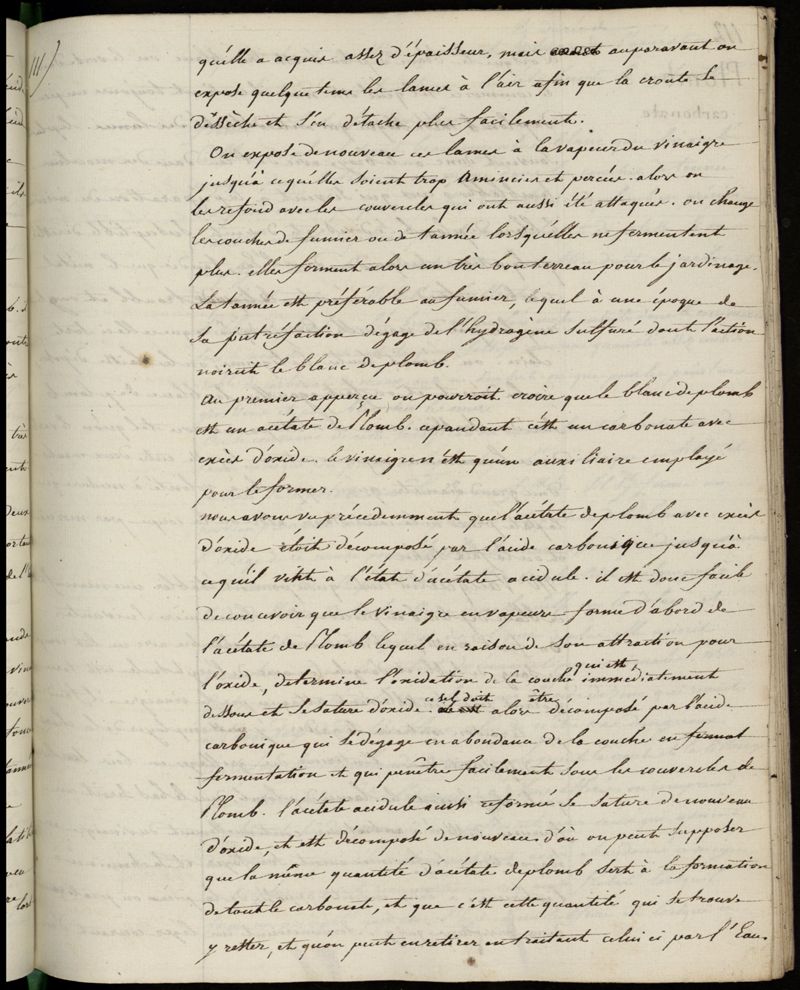 111)
qu'elle a acquis assez d'épaisseur, mais auparavant on
expose quelque tems les lames à l'air afin que la croute se
déssèche et s'en détache plus facilement.
On expose de nouveau ces lames à la vapeur du vinaigre
jusqu'à ce qu'elles soient trop Amincies et percées. alors on
les refond avec les couvercles qui ont aussi été attaqués. on change
les couches de fumier ou de tannée lorsqu'elles ne fermentent
plus. elles forment alors un très bon terreau pour le jardinage.
La tannée est préférable au fumier, lequel à une époque de
sa putréfaction dégage de l'hydrogène sulfuré dont l'action
noircit le blanc de plomb.
Au premier apperçu on pourroit croire que le blanc de plomb
est un acétate de Plomb. cependant c'est un carbonate avec
excès d'oxide. le vinaigre n'est qu'un auxiliaire employé
pour le former.
nous avons vu précédemment que l'acétate de plomb avec excès
d'oxide étoit décomposé par l'acide carbonique jusqu'à
ce qu'il vint à l'état d'acétate acidule. il est donc facile
de concevoir que le vinaigre en vapeurs forme d'abord de
l'acétate de Plomb lequel en raison de son attraction pour
l'oxide, determine l'oxidation de la couche qui est, immédiatement
dessous et se sature d'oxide. ce sel doit alors être décomposé par l'acide
carbonique qui se dégage en abondance de la couche en
fermentation et qui penêtre facilement sous les couvercles de
Plomb. l'acétate acidule ainsi reformé se sature de nouveau
d'oxide, et est décomposé de nouveau. d'où on peut supposer
que la même quantité d'acétate de plomb sert à la formation
de tout le carbonate, et que c'est cette quantité qui se trouve
y rester, et qu'on peut en retirer en traitant celui ci par l'Eau.